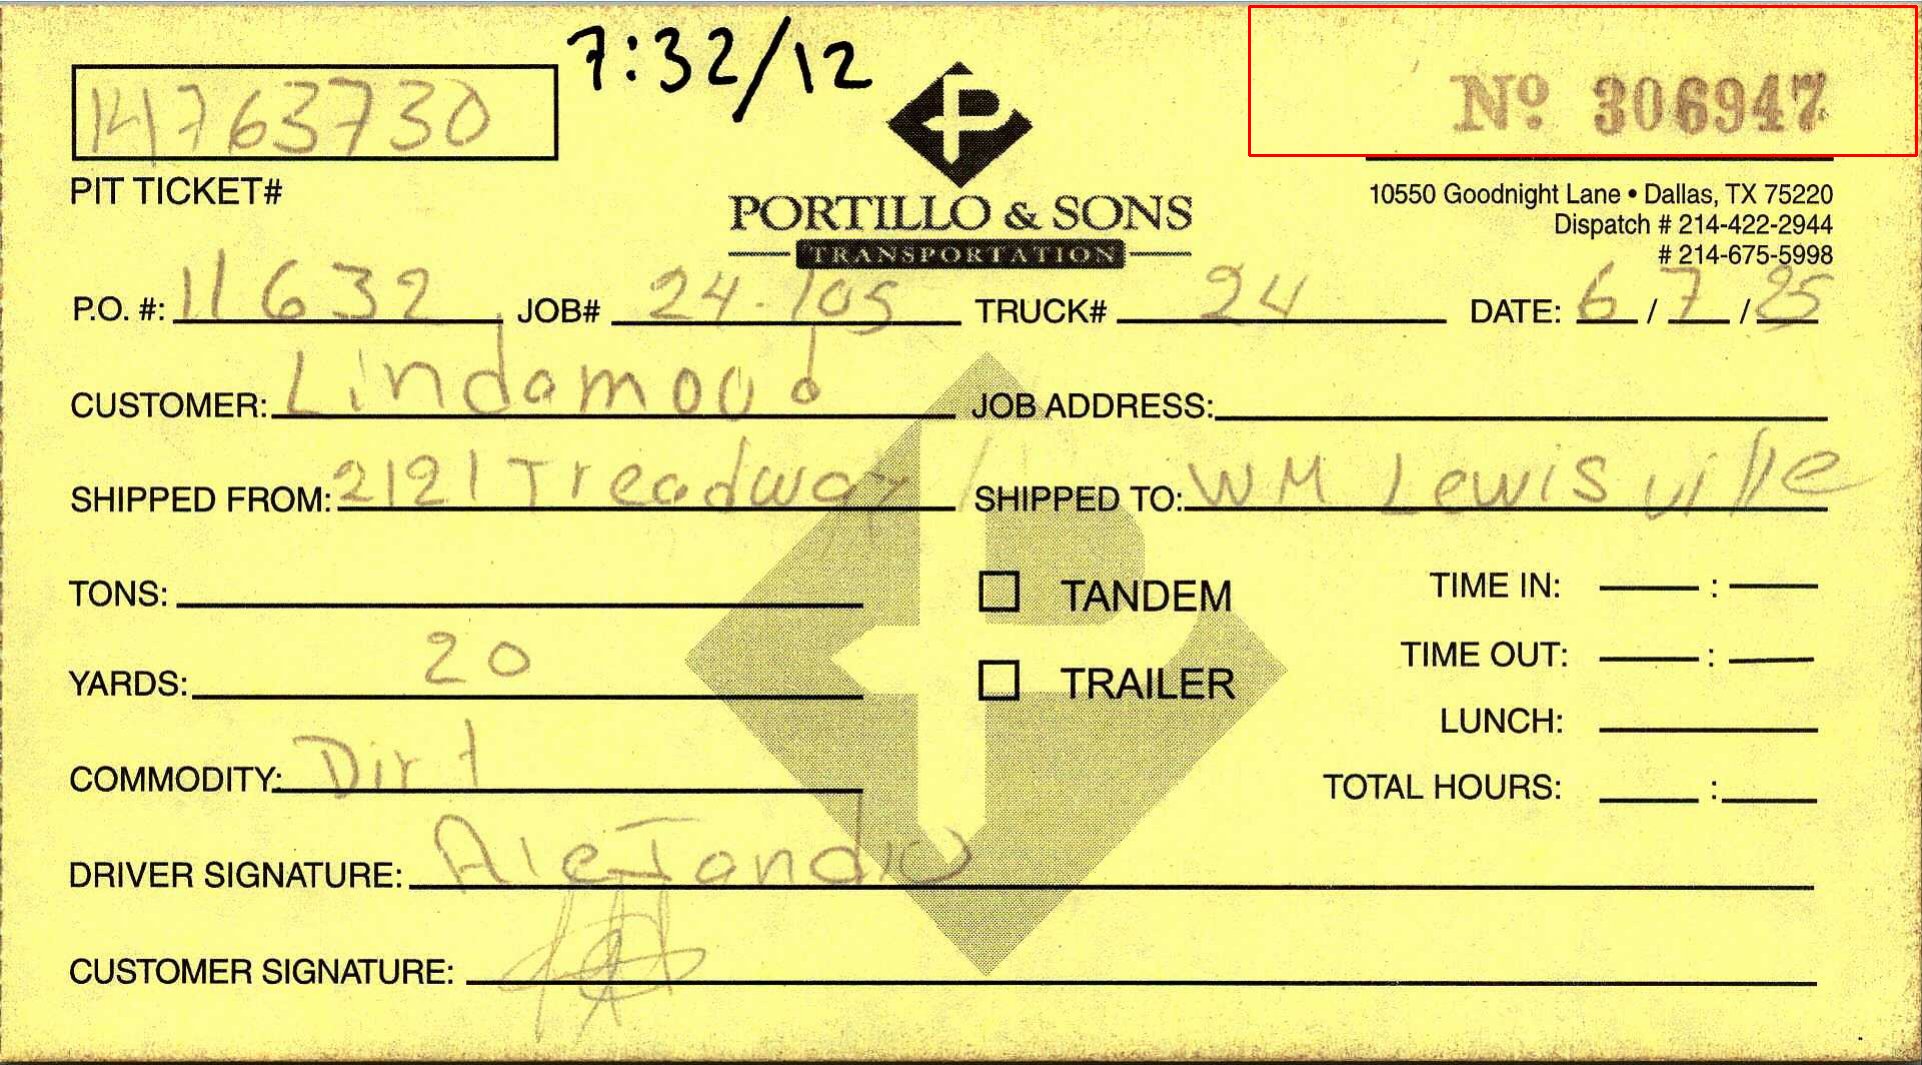 7:32/12
14763730
Nº 306947
PIT TICKET#
PORTILLO & SONS
TRANSPORTATION
10550 Goodnight Lane • Dallas, TX 75220
Dispatch # 214-422-2944
# 214-675-5998
P.O. #: 11632 JOB# 24-105 TRUCK# 24 DATE: 6 / 7 / 25
CUSTOMER: Lindamood JOB ADDRESS:
SHIPPED FROM: 2121 Treadway SHIPPED TO: WM Lewisville
TONS: TANDEM TIME IN: :
YARDS: 20 TRAILER TIME OUT: :
LUNCH:
COMMODITY: Dirt TOTAL HOURS: :
DRIVER SIGNATURE: AleJandro
CUSTOMER SIGNATURE: